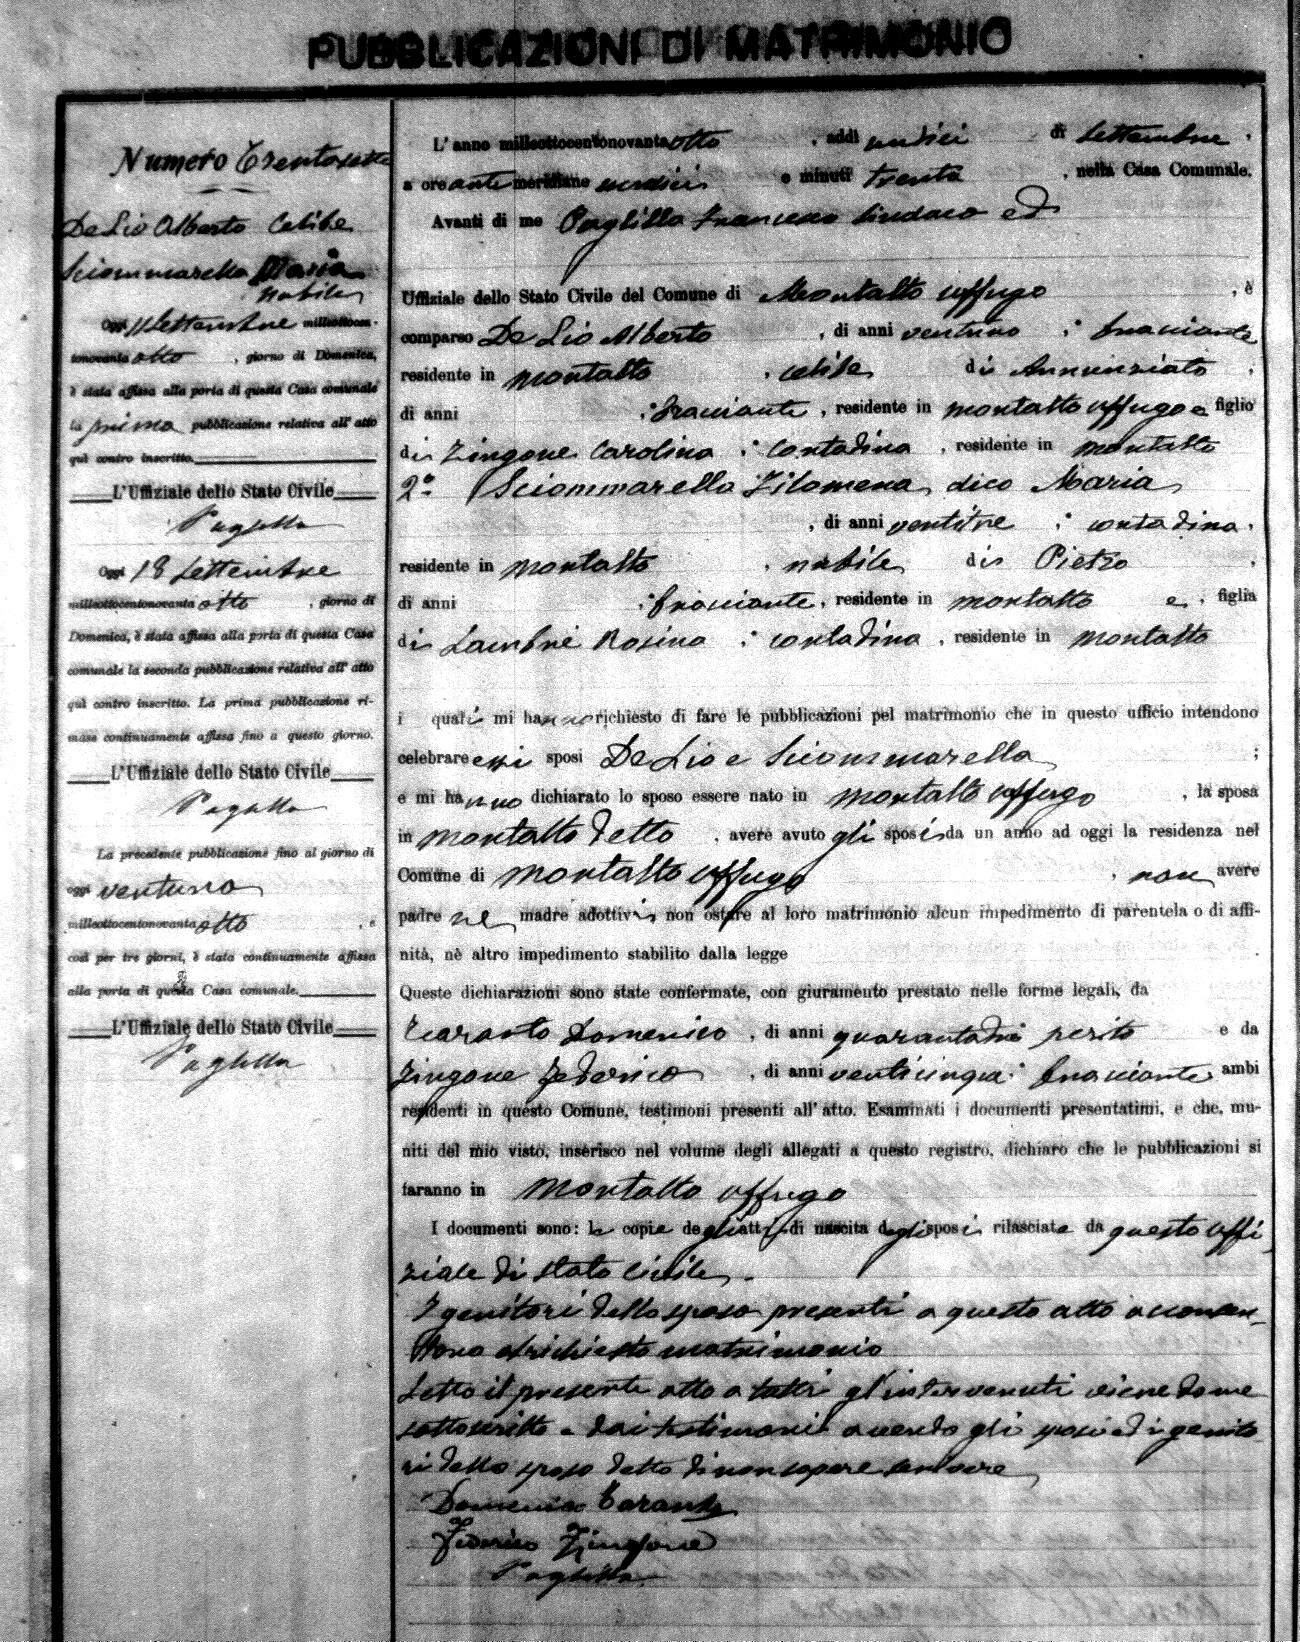 PUBBLICAZIONI DI MATRIMONIO
Numero Trentasette
De Lio Alberto Celibe
Sciommarella Maria
nubile
Oggi 11 Settembre milleottocen-
tonovanta otto , giorno di Domenica,
è stata affissa alla porta di questa Casa comunale
la prima pubblicazione relativa all' atto
quì contro inscritto.
L'Uffiziale dello Stato Civile
Paglilla
Oggi 18 Settembre
milleottocentonovanta otto , giorno di
Domenica, è stata affissa alla porta di questa Casa
comunale la seconda pubblicazione relativa all' atto
quì contro inscritto. La prima pubblicazione ri-
mase continuamente affissa fino a questo giorno.
L'Uffiziale dello Stato Civile
Paglilla
La precedente pubblicazione fino al giorno di
oggi ventuno
milleottocentonovanta otto , e
così per tre giorni, è stata continuamente affissa
alla porta di questa Casa comunale.
L'Uffiziale dello Stato Civile
Paglilla
L' anno milleottocentonovanta otto , addì undici di Settembre ,
a ore antemeridiane undici e minuti trenta , nella Casa Comunale.
Avanti di me Paglilla Francesco Sindaco ed
Uffiziale dello Stato Civile del Comune di Montalto Uffugo , è
comparso De Lio Alberto , di anni ventuno ; bracciante
residente in Montalto , celibe di Annunziato ,
di anni ; bracciante , residente in Montalto Uffugo e figlio
di Zingone Carolina ; contadina , residente in Montalto
2° Sciommarella Filomena dico Maria
, di anni ventitre ; contadina ,
residente in Montalto , nubile di Pietro ,
di anni ; bracciante , residente in Montalto e , figlia
di Lambrè Rosina ; contadina , residente in Montalto
i quali mi hanno richiesto di fare le pubblicazioni pel matrimonio che in questo ufficio intendono
celebrare essi sposi De Lio e Sciommarella ;
e mi hanno dichiarato lo sposo essere nato in Montalto Uffugo , la sposa
in Montalto detto , avere avuto gli sposi da un anno ad oggi la residenza nel
Comune di Montalto Uffugo , non avere
padre nè madre adottivi non ostare al loro matrimonio alcun impedimento di parentela o di affi-
nità, nè altro impedimento stabilito dalla legge
Queste dichiarazioni sono state confermate, con giuramento prestato nelle forme legali, da
Taranto Domenico , di anni quarantadue perito e da
Zingone Federico , di anni venticinque ; bracciante ambi
residenti in questo Comune, testimoni presenti all' atto. Esaminati i documenti presentatimi, e che, mu-
niti del mio visto, inserisco nel volume degli allegati a questo registro, dichiaro che le pubblicazioni si
faranno in Montalto Uffugo
I documenti sono: le copie degli atti di nascita degli sposi rilasciate da questo uffi
ziale di stato civile.
I genitori dello sposo presenti a questo atto acconsen
tono al richiesto matrimonio
Letto il presente atto a tutti gl'intervenuti viene da me
sottoscritto e dai testimoni avendo gli sposi ed i genito
ri dello sposo detto di non sapere scrivere
Domenico Taranto
Federico Zingone
Paglilla